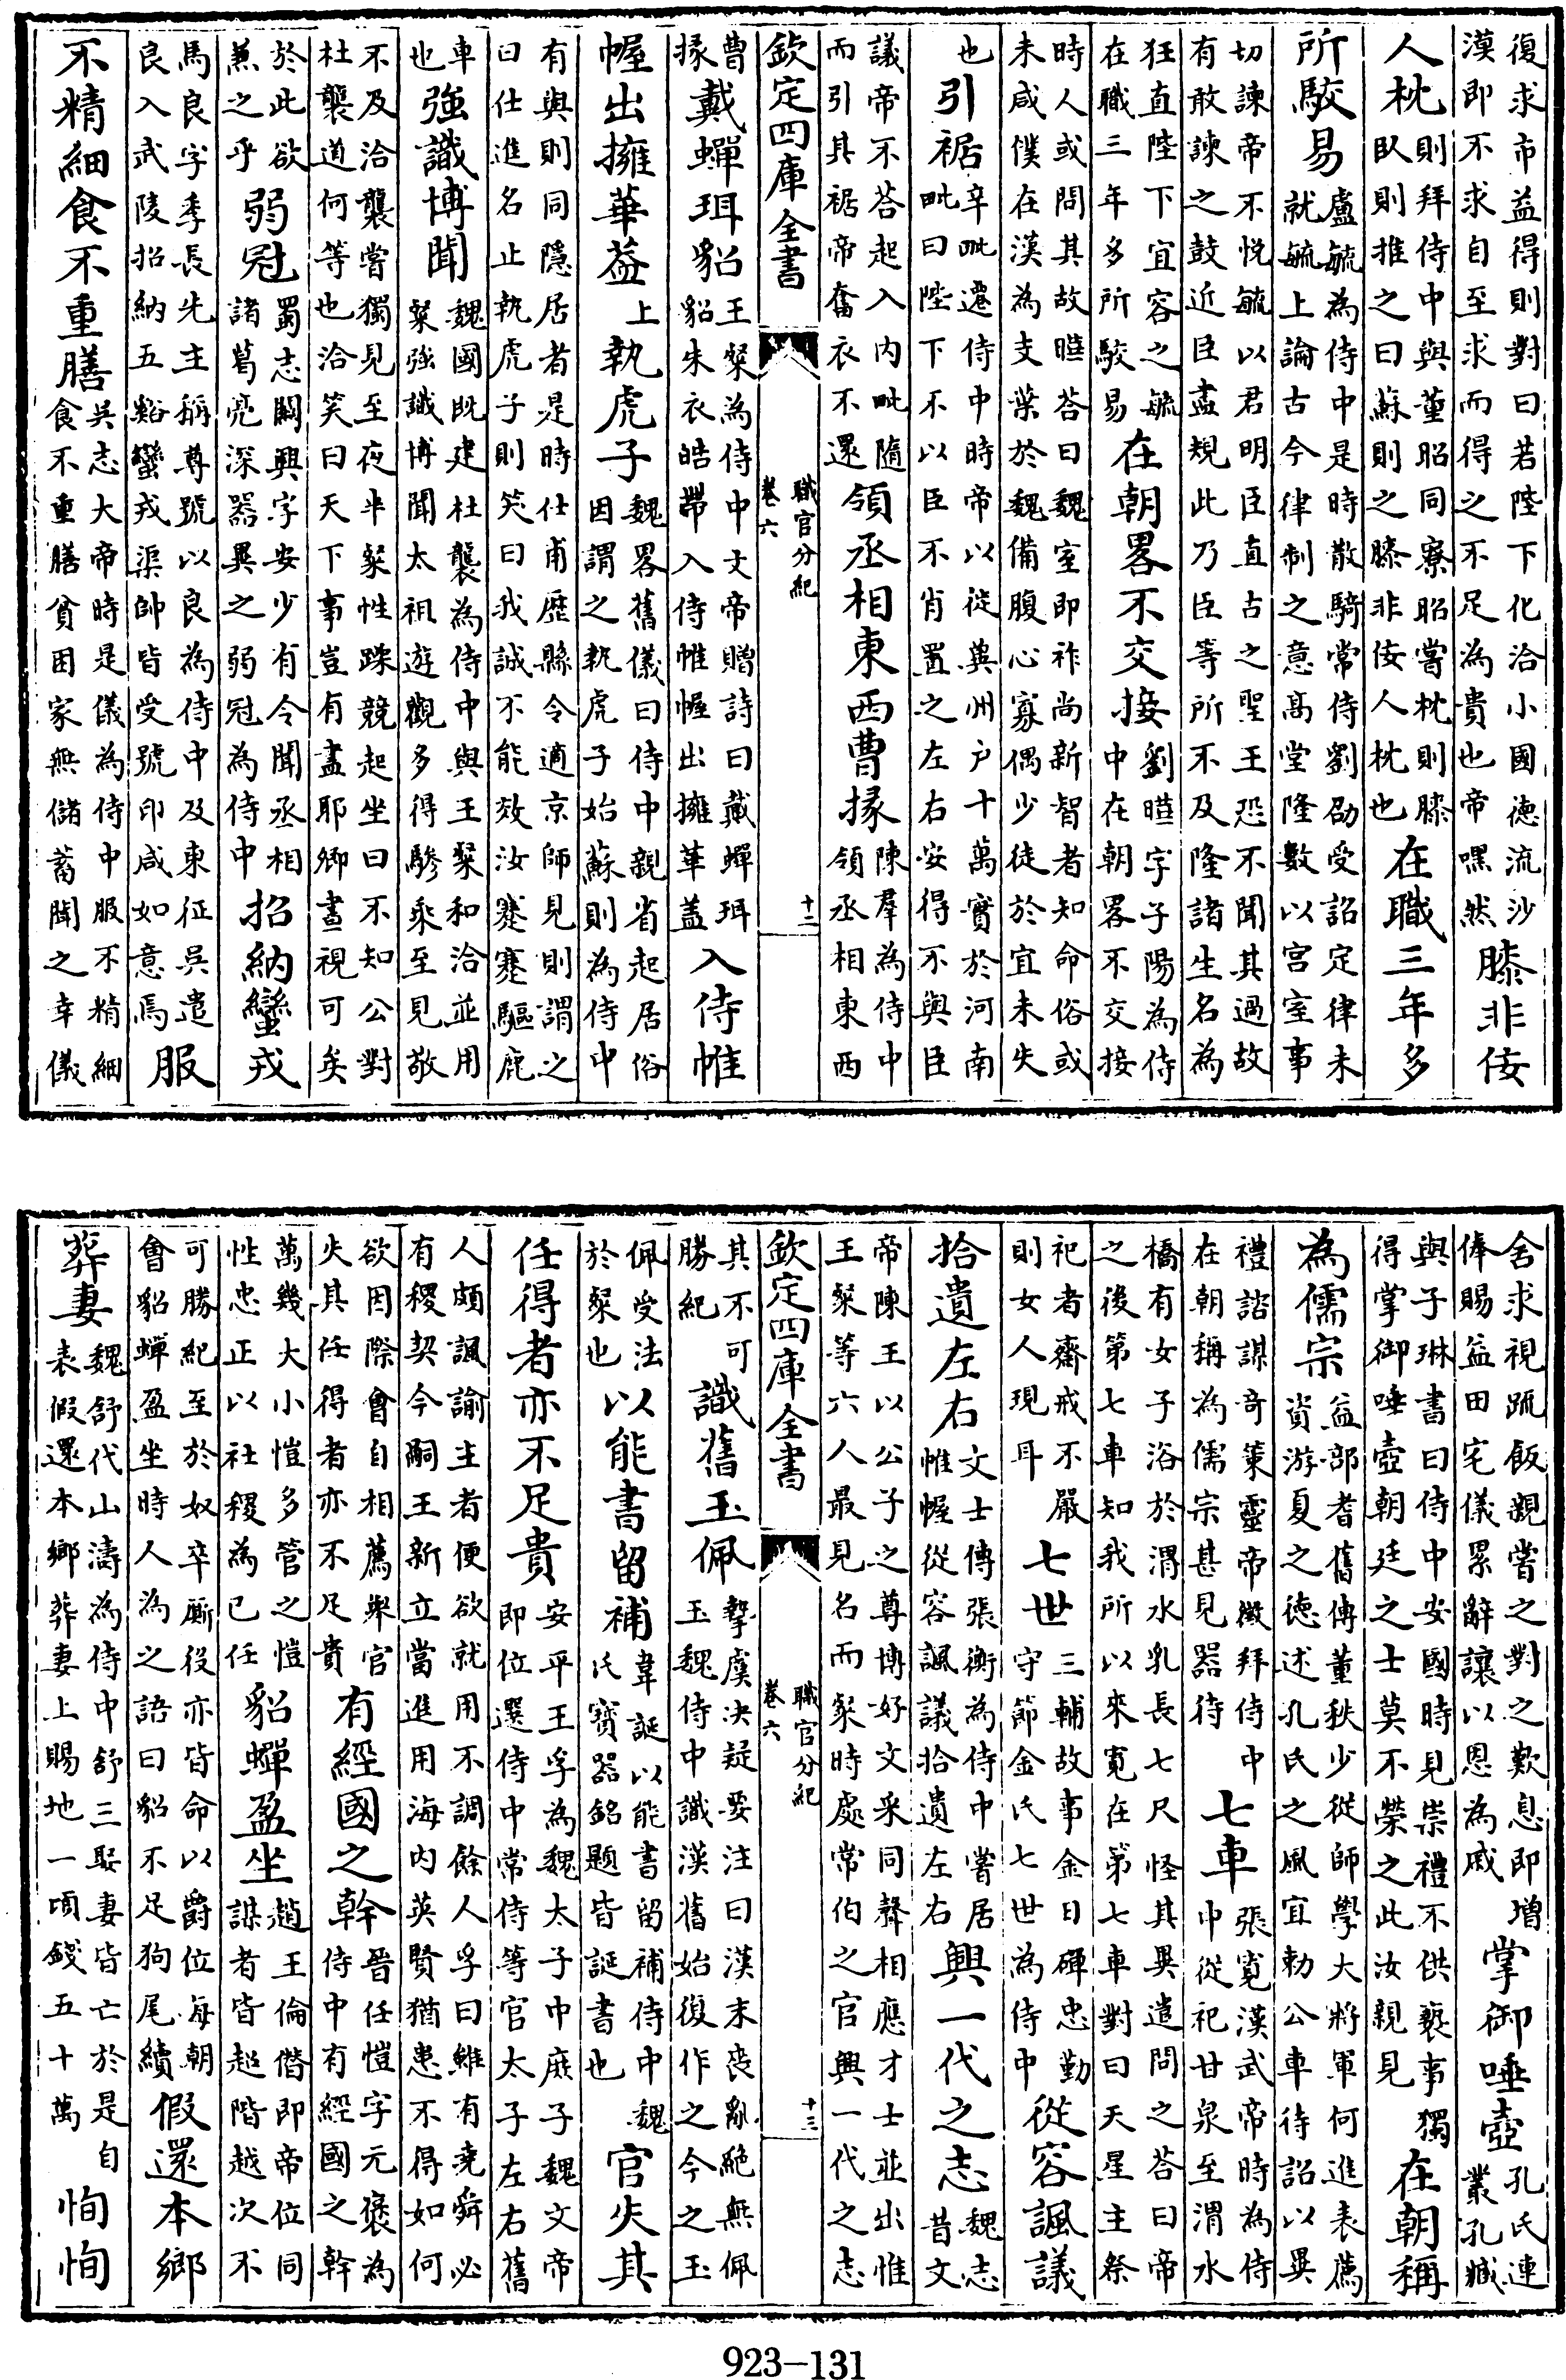 復求市益得則對曰若陛下化洽小國德流沙
漠即不求自至求而得之不足為貴也帝嘿然膝非佞
人枕則拜侍中與董昭同寮昭嘗枕則膝
臥則推之曰蘇則之膝非佞人枕也在職三年多
所駮易盧毓為侍中是時散騎常侍劉劭受詔定律未
就毓上論古今律制之意高堂隆數以宮室事
切諫帝不悅毓以君明臣直古之聖王恐不聞其過故
有敢諫之鼓近臣盡規此乃臣等所不及隆諸生名為
狂直陛下宜容之毓
在職三年多所駮易在朝畧不交接劉曄字子陽為侍
中在朝畧不交接
時人或問其故曄荅曰魏室即祚尚新智者知命俗或
未咸僕在漢為支葉於魏備腹心寡偶少徒於宜未失
也引裾辛毗遷侍中時帝以從兾州户十萬實於河南
毗曰陛下不以臣不肖置之左右安得不與臣
議帝不荅起入內毗隨
而引其裾帝奮衣不還領丞相東西曹掾陳羣為侍中
領丞相東西
欽定四庫全書 職官分紀 卷六 十二
曹
掾戴蟬珥貂王粲為侍中文帝贈詩曰戴蟬珥
貂朱衣皓帶入侍帷幄出擁華蓋入侍帷
幄出擁華葢上執虎子魏畧舊儀曰侍中親省起居俗
因謂之執虎子始蘇則為侍中
有與則同隱居者是時仕甫歷縣令適京師見則謂之
曰仕進名止執虎子則笑曰我誠不能效汝蹇蹇驅鹿
車
也強識博聞魏國既建杜襲為侍中與王粲和洽並用
粲強識博聞太祖遊觀多得驂乘至見敬
不及洽襲嘗獨見至夜半粲性躁競起坐曰不知公對
杜襲道何等也洽笑曰天下事豈有盡耶卿晝視可矣
於此欲
兼之乎弱冠蜀志關興字安少有令聞丞相
諸葛亮深器異之弱冠為侍中招納蠻戎
馬良字季長先主稱尊號以良為侍中及東征吳遣
良入武陵招納五谿蠻戎渠帥皆受號印咸如意焉服
不精細食不重膳吳志大帝時是儀為侍中服不精細
食不重膳貧困家無儲蓄聞之幸儀
舍求視蔬飯親嘗之對之歎息即增
俸賜益田宅儀累辭讓以恩為戚掌御唾壺孔氏連
叢孔臧
與子琳書曰侍中安國時見崇禮不供褻事獨
得掌御唾壺朝廷之士莫不榮之此汝親見在朝稱
為儒宗益部耆舊傳董秩少從師學大將軍何進表薦
資游夏之德述孔氏之風宜勅公車待詔以異
禮諮謀奇策靈帝徵拜侍中
在朝稱為儒宗甚見器待七車張寬漢武帝時為侍
中從祀甘泉至渭水
橋有女子浴於渭水乳長七尺怪其異遣問之荅曰帝
之後第七車知我所以來寬在第七車對曰天星主祭
祀者齋戒不嚴
則女人現耳七世三輔故事金日磾忠勤
守節金氏七世為侍中從容諷議
拾遺左右文士傳張衡為侍中嘗居
帷幄從容諷議拾遺左右興一代之志魏志
昔文
帝陳王以公子之尊博好文采同聲相應才士並出惟
王粲等六人最見名而粲時處常伯之官興一代之志
欽定四庫全書 職官分紀 卷六 十三
其不可
勝紀識舊玉佩摯虞決疑要注曰漢末喪亂絕無佩
玉魏侍中識漢舊始復作之今之玉
佩受法
於粲也以能書留補韋誕以能書留補侍中魏
氏寶器銘題皆誕書也官失其
任得者亦不足貴安平王孚為魏太子中庶子魏文帝
即位選侍中常侍等官太子左右舊
人頗諷諭主者便欲就用不調餘人孚曰雖有堯舜必
有稷契今嗣王新立當進用海內英賢猶患不得如何
欲因際會自相薦舉官
失其任得者亦不足貴有經國之幹晉任愷字元褒為
侍中有經國之幹
萬幾大小愷多管之愷
性忠正以社稷為已任貂蟬盈坐趙王倫僭即帝位同
謀者皆超階越次不
可勝紀至於奴卒廝役亦皆命以爵位每朝
會貂蟬盈坐時人為之語曰貂不足狗尾續假還本鄉
葬妻魏舒代山濤為侍中舒三娶妻皆亡於是自
表假還本鄉葬妻上賜地一頃錢五十萬恂恂
923-131